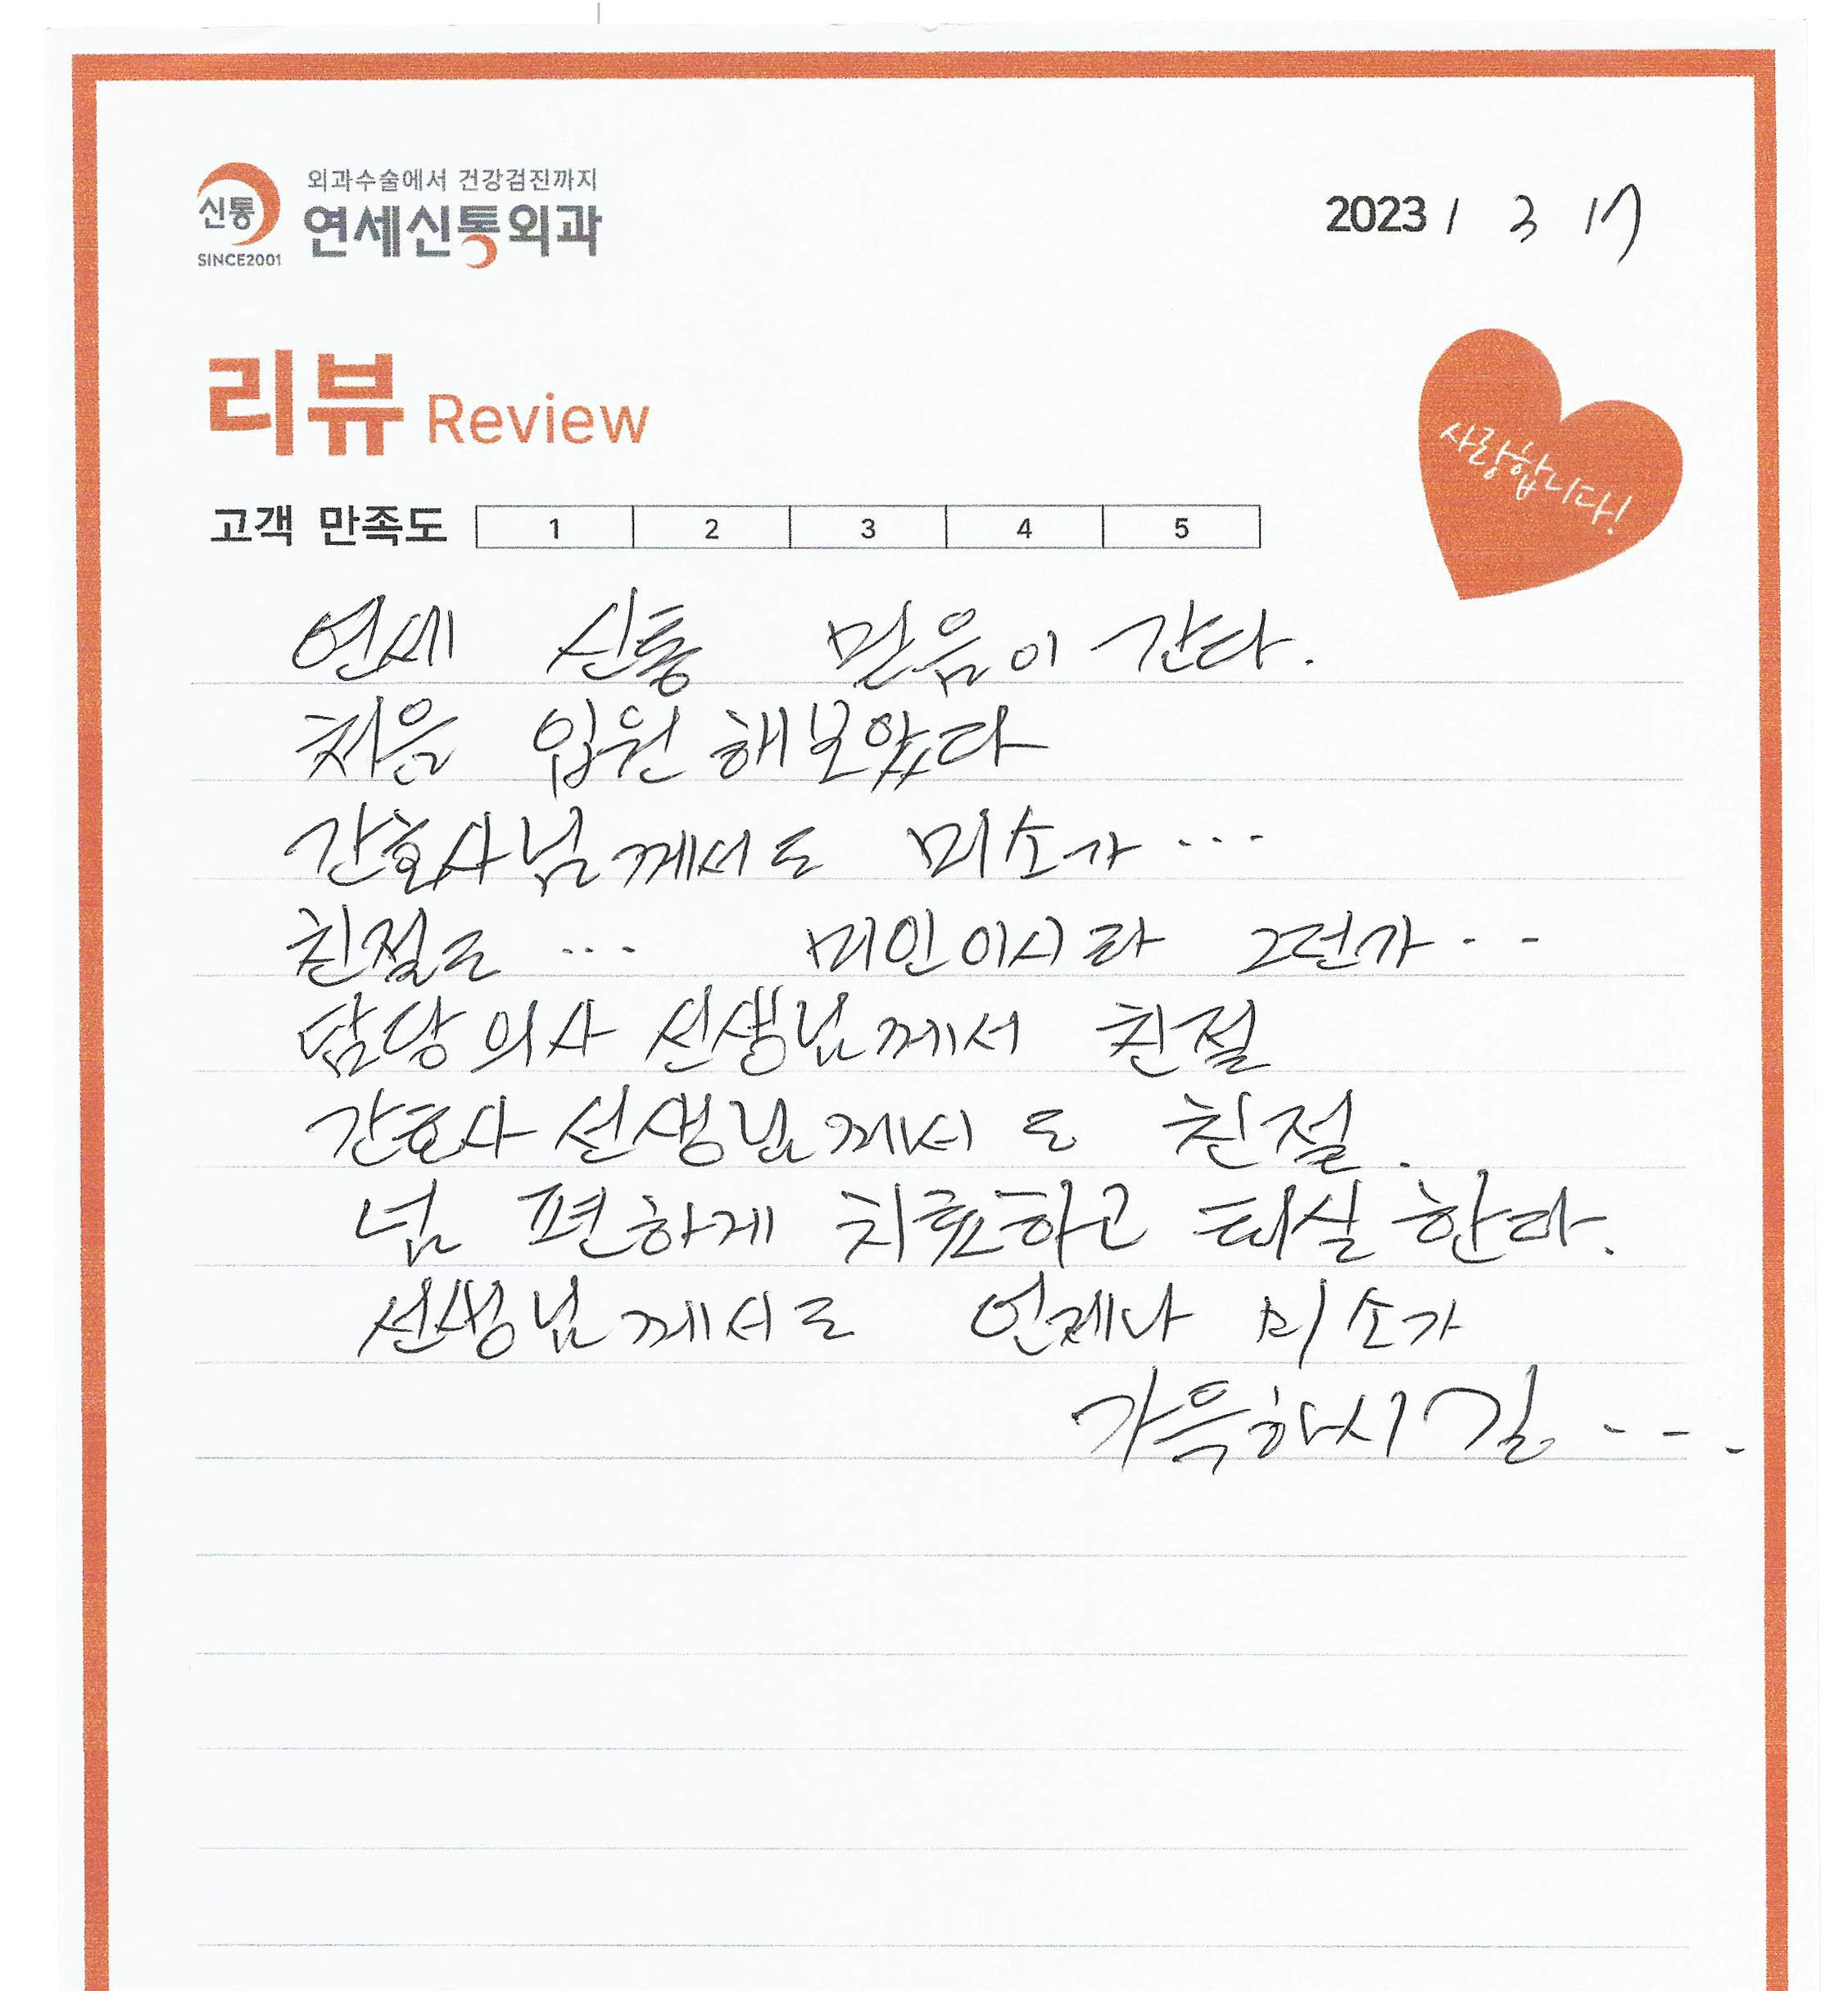 외과수술에서 건강검진까지
신통 연세신통외과
SINCE2001
2023 / 3 17
리뷰 Review
사랑합니다!
고객 만족도 1 2 3 4 5
연세 신통 믿음이 간다.
처음 입원 해보았다
간호사님께서도 미소가 ...
친절도 ... 미인이시라 그런가 ..
담당의사 선생님께서 친절
간호사 선생님께서도 친절.
넘 편하게 치료하고 퇴실 한다.
선생님께서도 언제나 미소가
가득하시길 ...